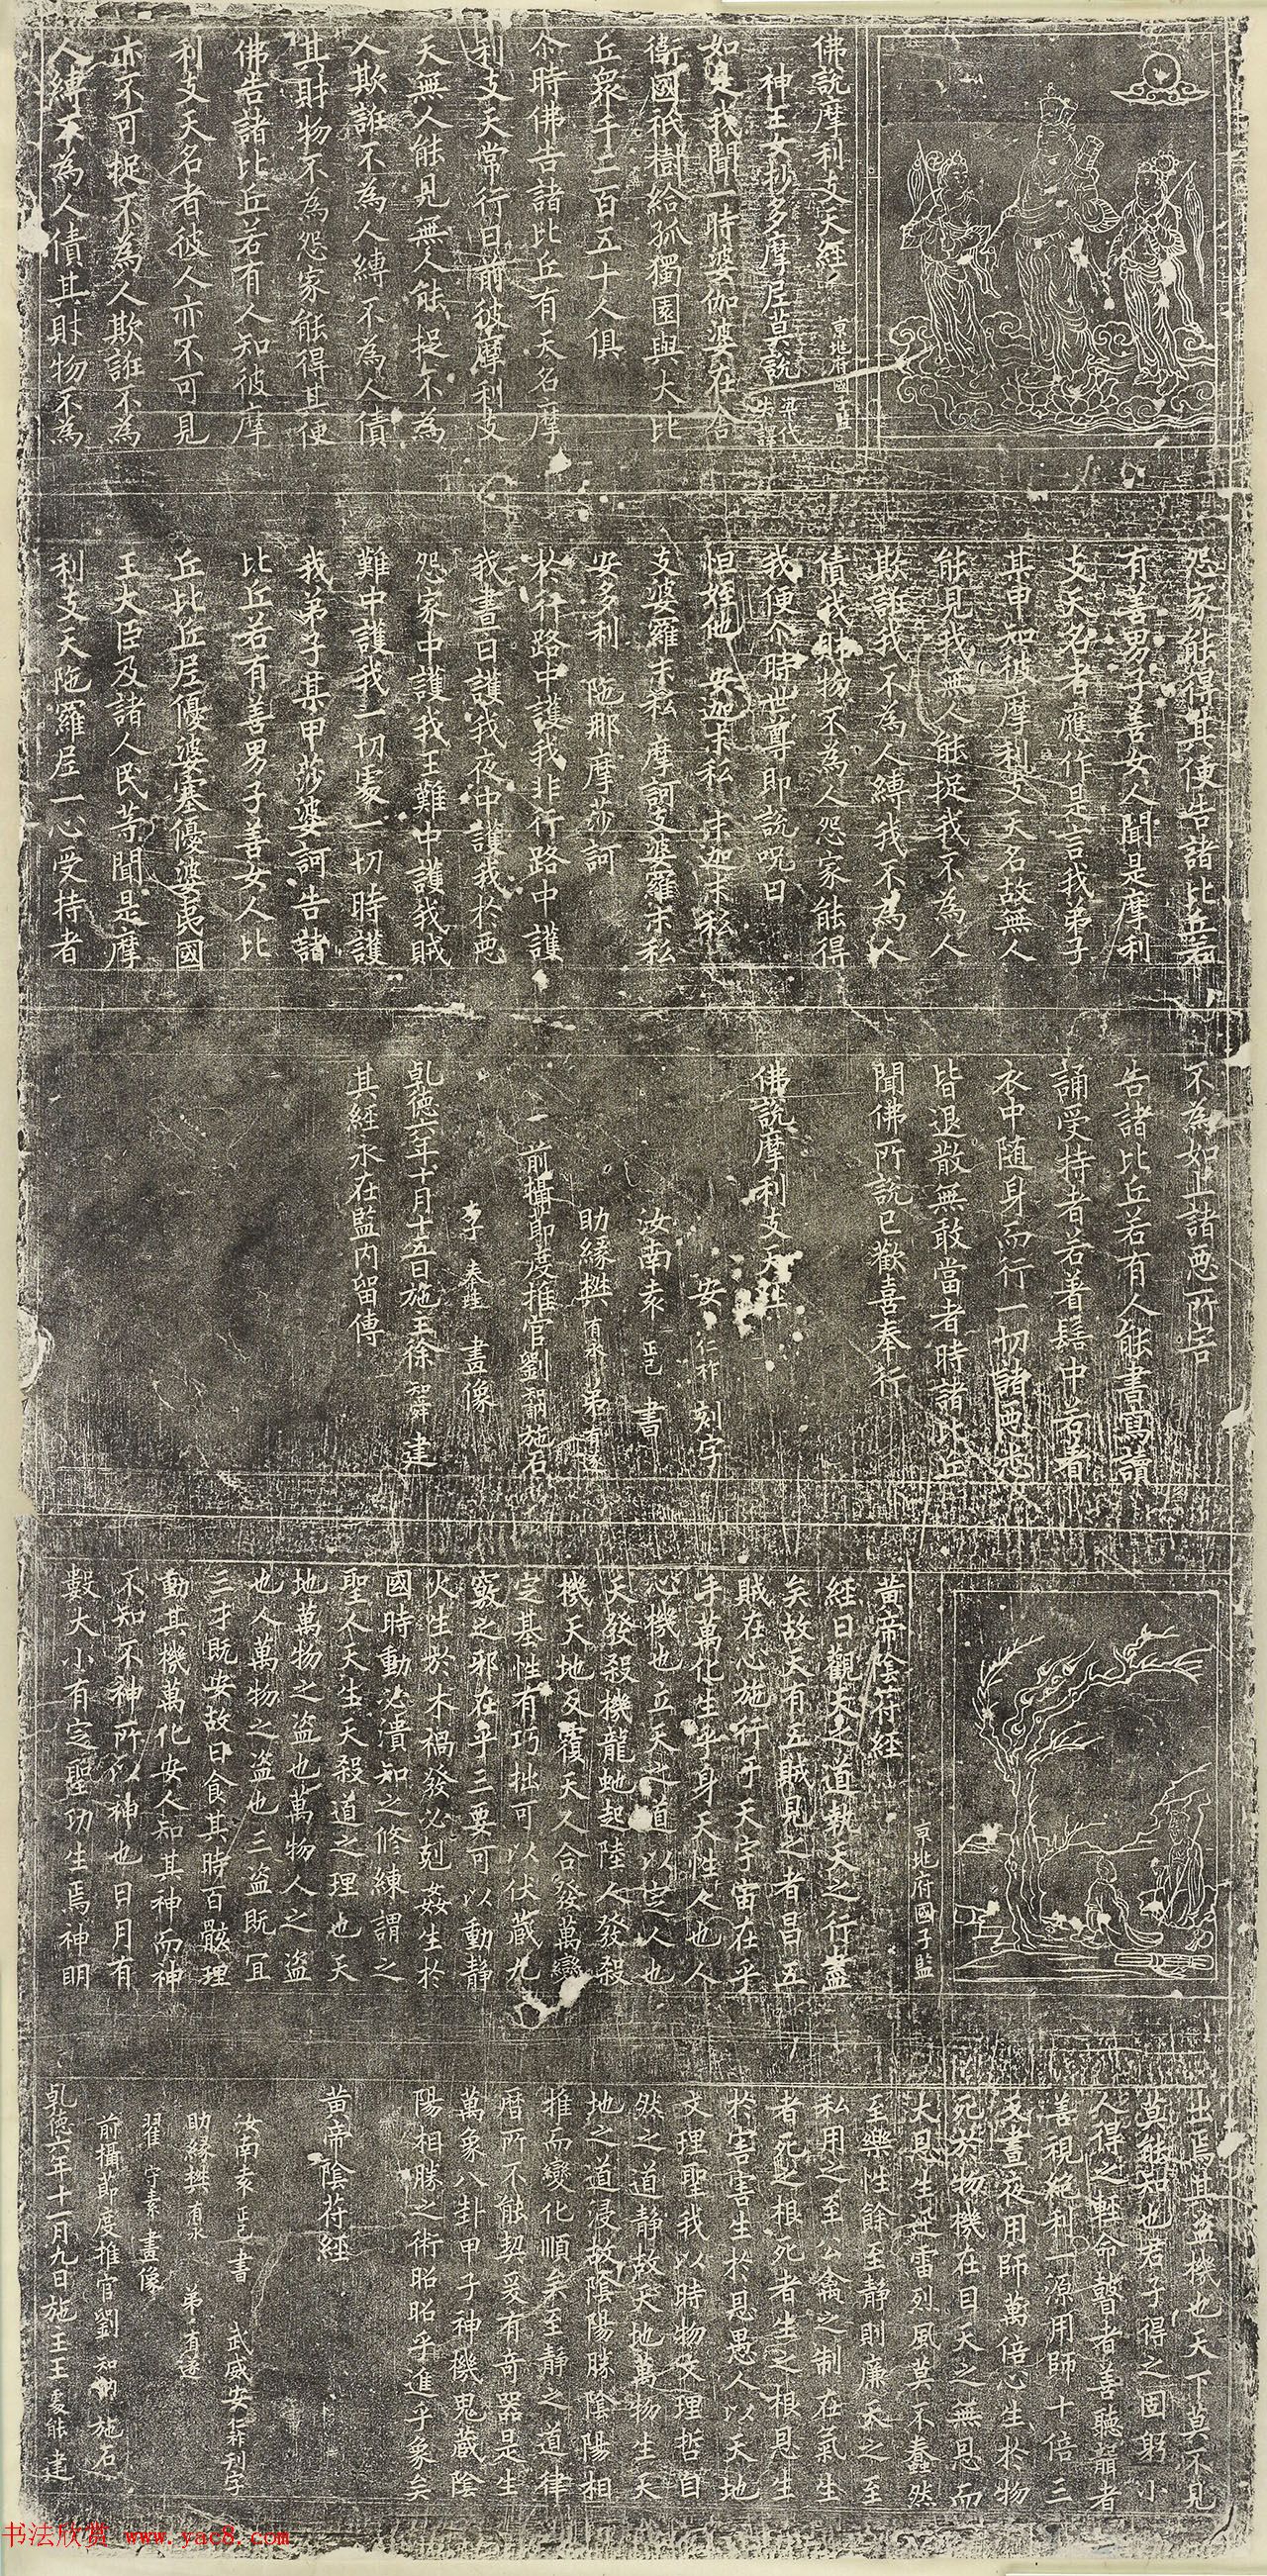 佛說摩利支天經 京兆府國子監
神王女抄多摩尼莫說 梁代失譯
如是我聞一時婆伽婆在舍
衛國祇樹給孤獨園與大比
丘眾千二百五十人俱
尒時佛告諸比丘有天名摩
利支天常行日前彼摩利支
天無人能見無人能捉不為
人欺誑不為人縛不為人債
其財物不為怨家能得其便
佛告諸比丘若有人知彼摩
利支天名者彼人亦不可見
亦不可捉不為人欺誑不為
人縛不為人債其財物不為
怨家能得其便告諸比丘若
有善男子善女人聞是摩利
支天名者應作是言我弟子
某甲知彼摩利支天名故無人
能見我無人能捉我不為人
欺誑我不為人縛我不為人
債我財物不為人怨家能得
我便尒時世尊即說呪曰
怛姪他 安迦末私 末迦末私
支婆羅末私 摩訶支婆羅末私
安多利 陁那摩莎訶
於行路中護我非行路中護
我晝日護我夜中護我於惡
怨家中護我王難中護我賊
難中護我一切處一切時護
我弟子某甲莎婆訶告諸
比丘若有善男子善女人比
丘比丘尼優婆塞優婆夷國
王大臣及諸人民等聞是摩
利支天陁羅尼一心受持者
不為如上諸惡所害
告諸比丘若有人能書寫讀
誦受持者若著髻中若著
衣中随身而行一切諸惡悉
皆退散無敢當者時諸比丘
聞佛所說已歡喜奉行
佛說摩利支天經
安仁祚 刻字
汝南袁正己 書
助緣樊有永 弟有遂
前攝節度推官劉知訥施石
李奉珪 畫像
乹德六年十月十五日施主徐知舜 建
其經永在監內留傳
京兆府國子監
黃帝陰符經
經曰觀天之道執天之行盡
矣故天有五賊見之者昌五
賊在心施行乎天宇宙在乎
手萬化生乎身天性人也人
心機也立天之道以定人也
天發殺機龍虵起陸人發殺
機天地反覆天人合發萬變
定基性有巧拙可以伏藏九
竅之邪在乎三要可以動靜
火生於木禍發必剋姦生於
國時動必潰知之修練謂之
聖人天生天殺道之理也天
地萬物之盜也萬物人之盜
也人萬物之盜也三盜既冝
三才既安故曰食其時百骸理
動其機萬化安人知其神而神
不知不神所以神也日月有
數大小有定聖功生焉神明
出焉其盜機也天下莫不見
莫能知也君子得之固躬小
人得之輕命瞽者善聽聾者
善視絕利一源用師十倍三
反晝夜用師萬倍心生於物
死於物機在目天之無恩而
大恩生迅雷烈風莫不蠢然
至樂性餘至靜則廉天之至
私用之至公禽之制在氣生
者死之根死者生之根恩生
於害害生於恩愚人以天地
文理聖我以時物文理哲自
然之道靜故天地萬物生天
地之道浸故陰陽勝陰陽相
推而變化順矣至靜之道律
曆所不能契爰有奇器是生
萬象八卦甲子神機鬼藏陰
陽相勝之術昭昭乎進乎象矣
黃帝陰符經
汝南袁正己書 武威安仁祚刊字
助緣樊有永 弟有遂
翟守素畫像
前攝節度推官劉知訥施石
乹德六年十一月九日施主王處能建
书法欣赏 www.yac8.com